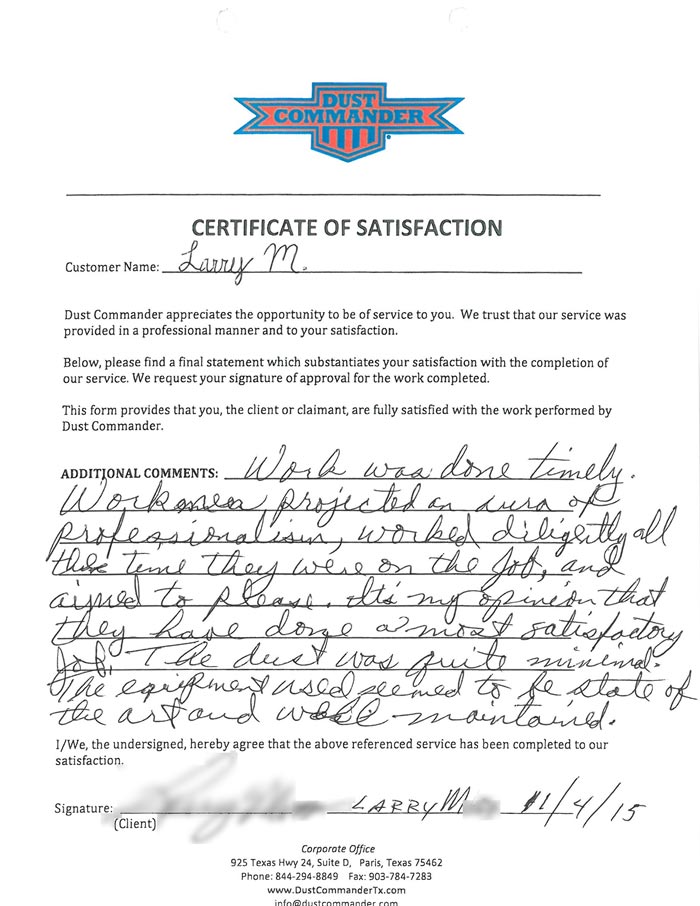 DUST
COMMANDER
CERTIFICATE OF SATISFACTION
Customer Name: Larry M.
Dust Commander appreciates the opportunity to be of service to you. We trust that our service was
provided in a professional manner and to your satisfaction.
Below, please find a final statement which substantiates your satisfaction with the completion of
our service. We request your signature of approval for the work completed.
This form provides that you, the client or claimant, are fully satisfied with the work performed by
Dust Commander.
ADDITIONAL COMMENTS: Work was done timely.
Workmen projected an aura of
professionalism, worked diligently all
the time they were on the job, and
aimed to please. It's my opinion that
they have done a most satisfactory
job. The dust was quite minimal.
The equipment used seemed to be state of
the art and well maintained.
I/We, the undersigned, hereby agree that the above referenced service has been completed to our
satisfaction.
Signature: LARRY M 11/4/15
(Client)
Corporate Office
925 Texas Hwy 24, Suite D, Paris, Texas 75462
Phone: 844-294-8849 Fax: 903-784-7283
www.DustCommanderTx.com
info@dustcommander.com